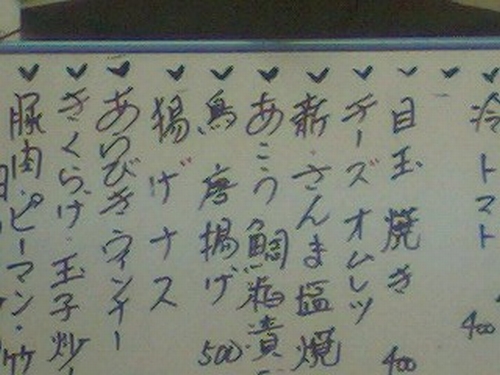 冷トマト 400
目玉焼き 400
チーズオムレツ
新さんま塩焼
あこう鯛粕漬
鳥唐揚げ 500
揚げナス
あらびきウインナー
きくらげ玉子炒
豚肉・ピーマン・竹